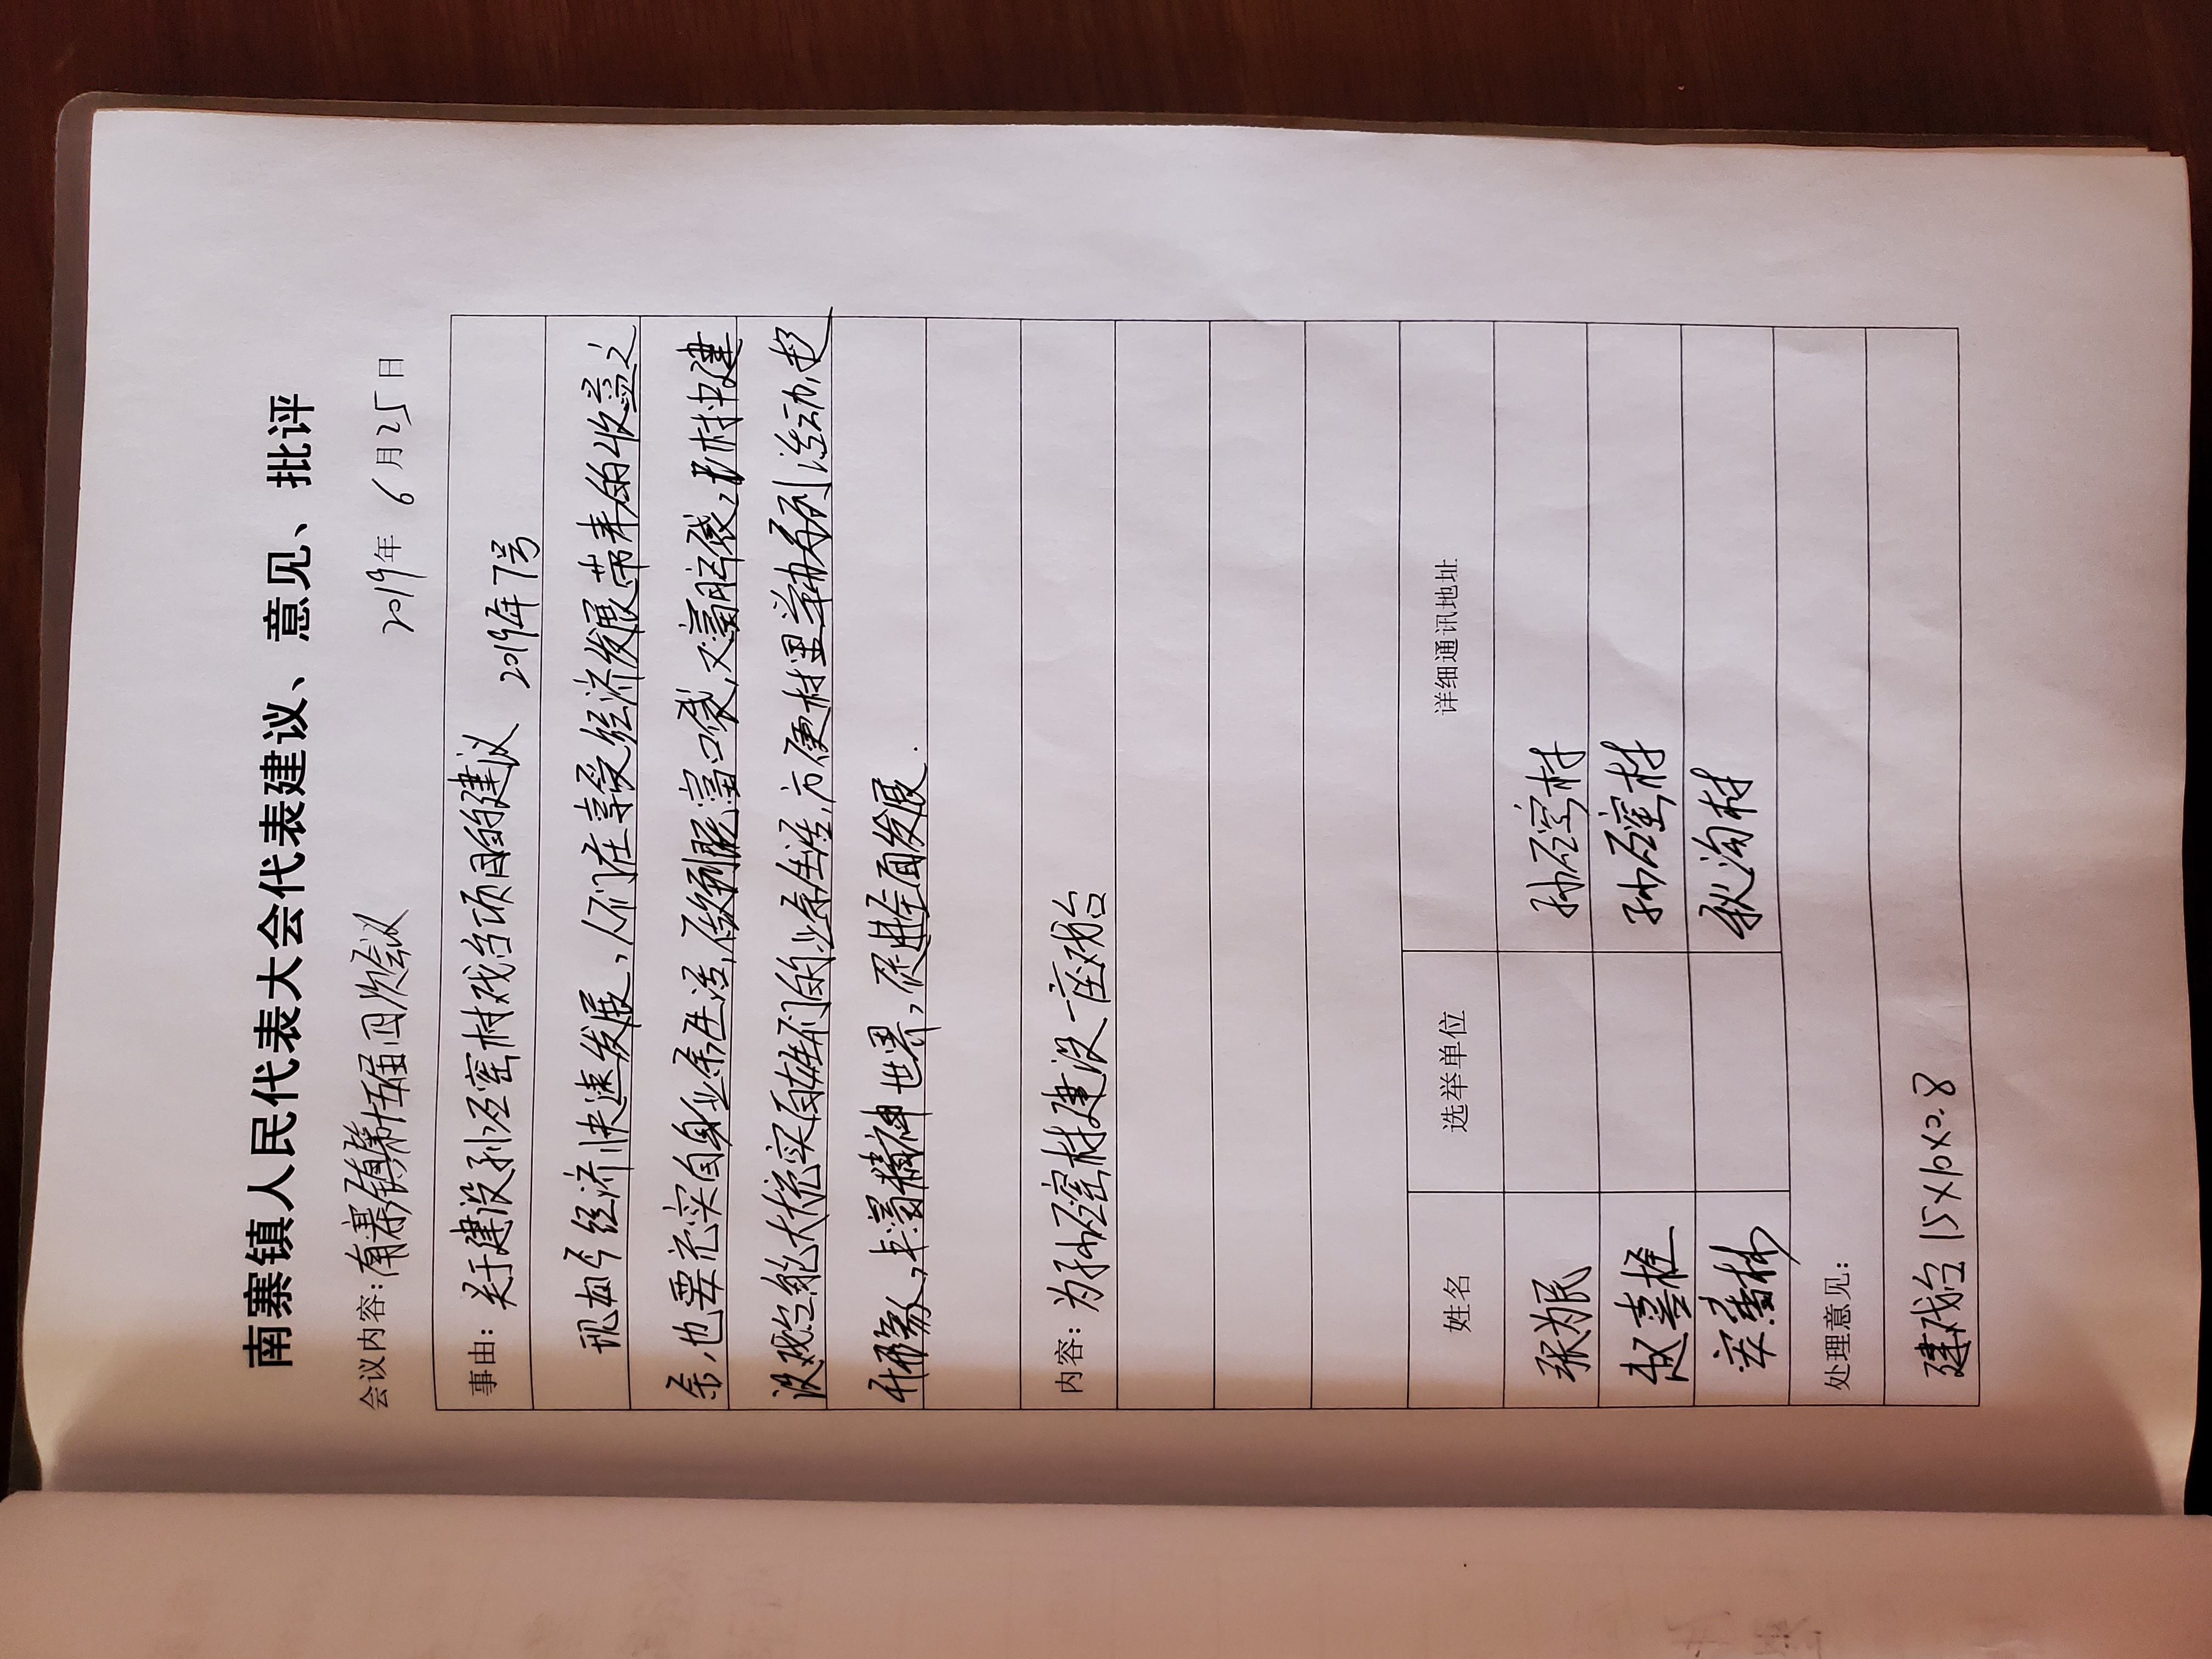 南寨镇人民代表大会代表建议、意见、批评
会议内容：南寨镇第十五届四次会议 2019年 6月25日
事由：关于建设孙石窑村戏台项目的建议 2019年7号
现如今经济快速发展，人们在享受经济发展带来的收益之
余，也要充实自身业余生活，做到既富口袋，又富脑袋，在村中建
设戏台能大大充实百姓们的业余生活，方便村里举办系列活动，提
升形象，丰富精神世界，促进全面发展.
内容：为孙石窑村建设一座戏台
姓名 选举单位 详细通讯地址
张为民 孙石窑村
赵喜栓 孙石窑村
宋春梅 秋沟村
处理意见：
建戏台 15×10×0.8